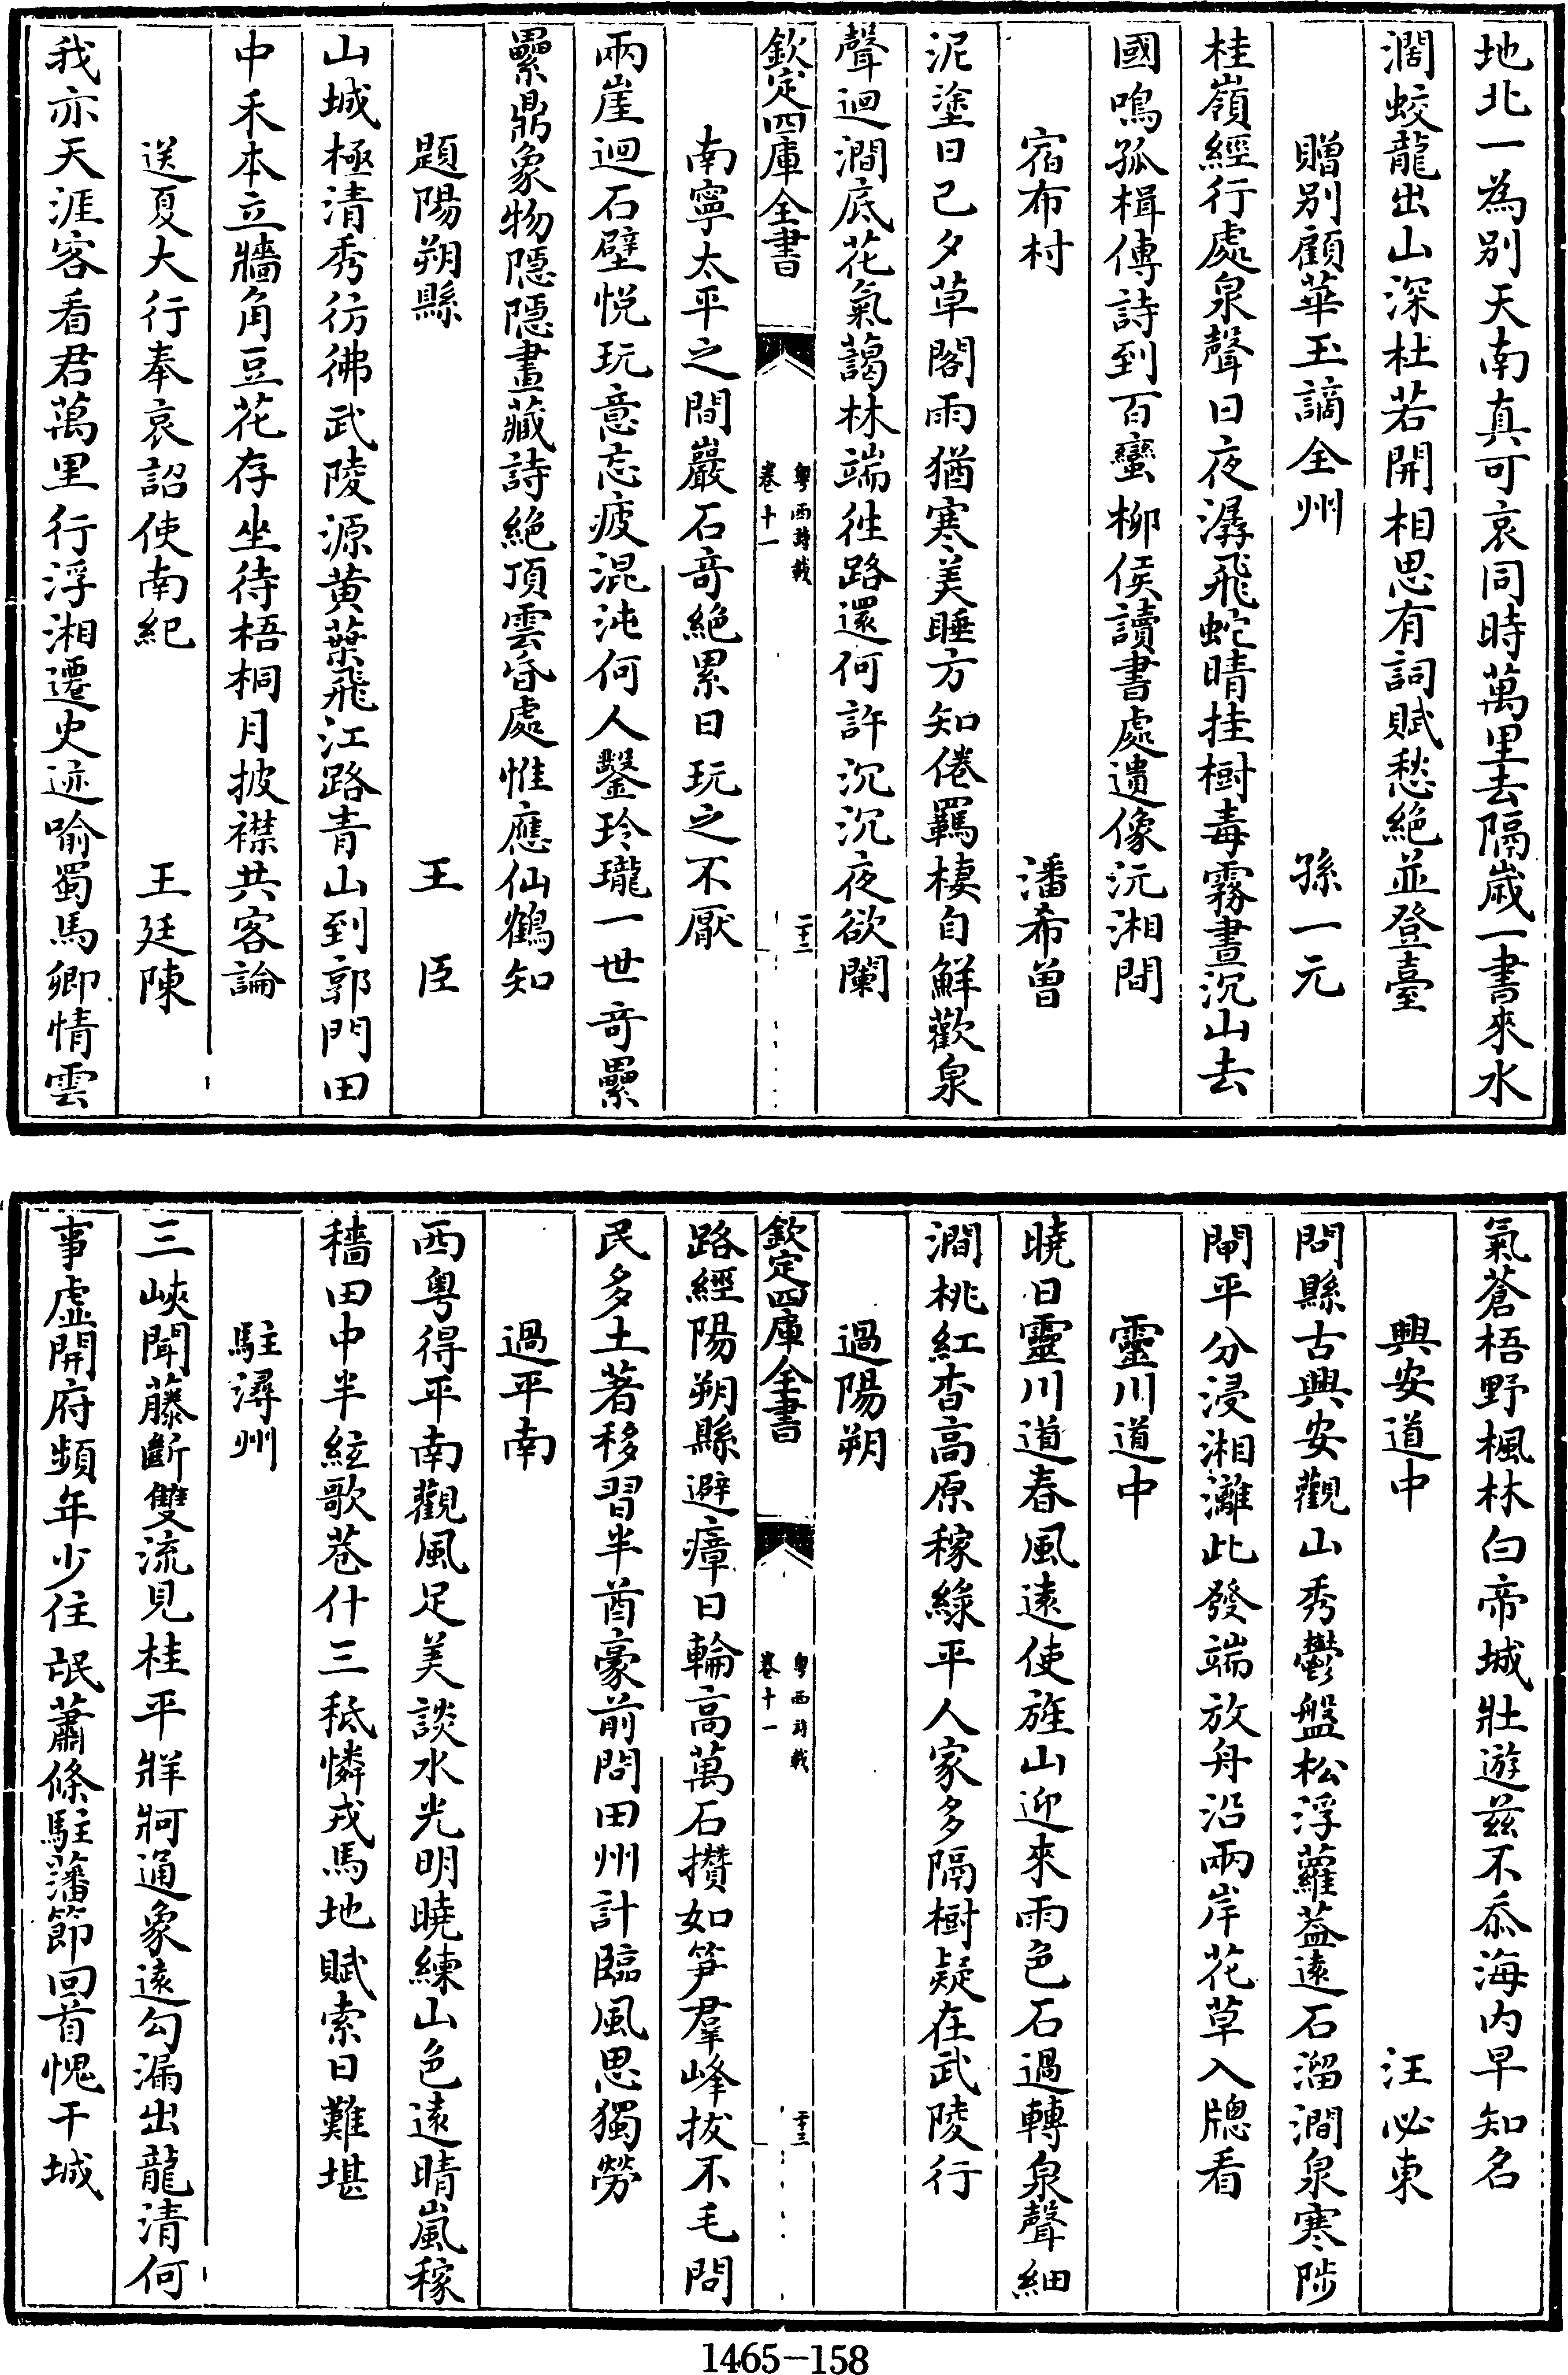 地北一為别天南真可哀同時萬里去隔歳一書來水
濶蛟龍出山深杜若開相思有詞賦愁絶並登臺
贈别顧華玉謫全州 孫一元
桂嶺經行處泉聲日夜潺飛蛇晴挂樹毒霧晝沉山去
國鳴孤楫傳詩到百蠻柳侯讀書處遺像沅湘間
宿布村 潘希曽
泥塗日已夕草閣雨猶寒美睡方知倦羈棲自鮮歡泉
聲迴澗底花氣藹林端徃路還何許沉沉夜欲闌
欽定四庫全書 粤西詩載 卷十一 二十二
南寧太平之間巖石竒絶累日玩之不厭
兩崖迴石壁悦玩意忘疲混沌何人鑿玲瓏一世竒纍
纍鼎象物隱隱畫藏詩絶頂雲昏處惟應仙鶴知
題陽朔縣 王臣
山城極清秀彷彿武陵源黄葉飛江路青山到郭門田
中禾本立牆角豆花存坐待梧桐月披襟共客論
送夏大行奉哀詔使南紀 王廷陳
我亦天涯客看君萬里行浮湘遷史迹喻蜀馬卿情雲
氣蒼梧野楓林白帝城壯遊兹不忝海内早知名
興安道中 汪必東
問縣古興安觀山秀鬱盤松浮蘿葢遠石溜澗泉寒陟
閘平分浸湘灕此發端放舟沿兩岸花草入牕看
靈川道中
曉日靈川道春風遠使旌山迎來雨色石過轉泉聲細
澗桃紅杳高原稼綠平人家多隔樹疑在武陵行
過陽朔
欽定四庫全書 粤西詩載 卷十一 二十三
路經陽朔縣避瘴日輪高萬石攢如笋羣峰拔不毛問
民多土著移習半酋豪前問田州計臨風思獨勞
過平南
西粤得平南觀風足美談水光明曉練山色遠晴嵐稼
穡田中半絃歌巷什三秪憐戎馬地賦索日難堪
駐潯州
三峽聞藤斷雙流見桂平牂牁通象遠勾漏出龍清何
事虚開府頻年少住氓蕭條駐藩節回首愧干城
1465－158